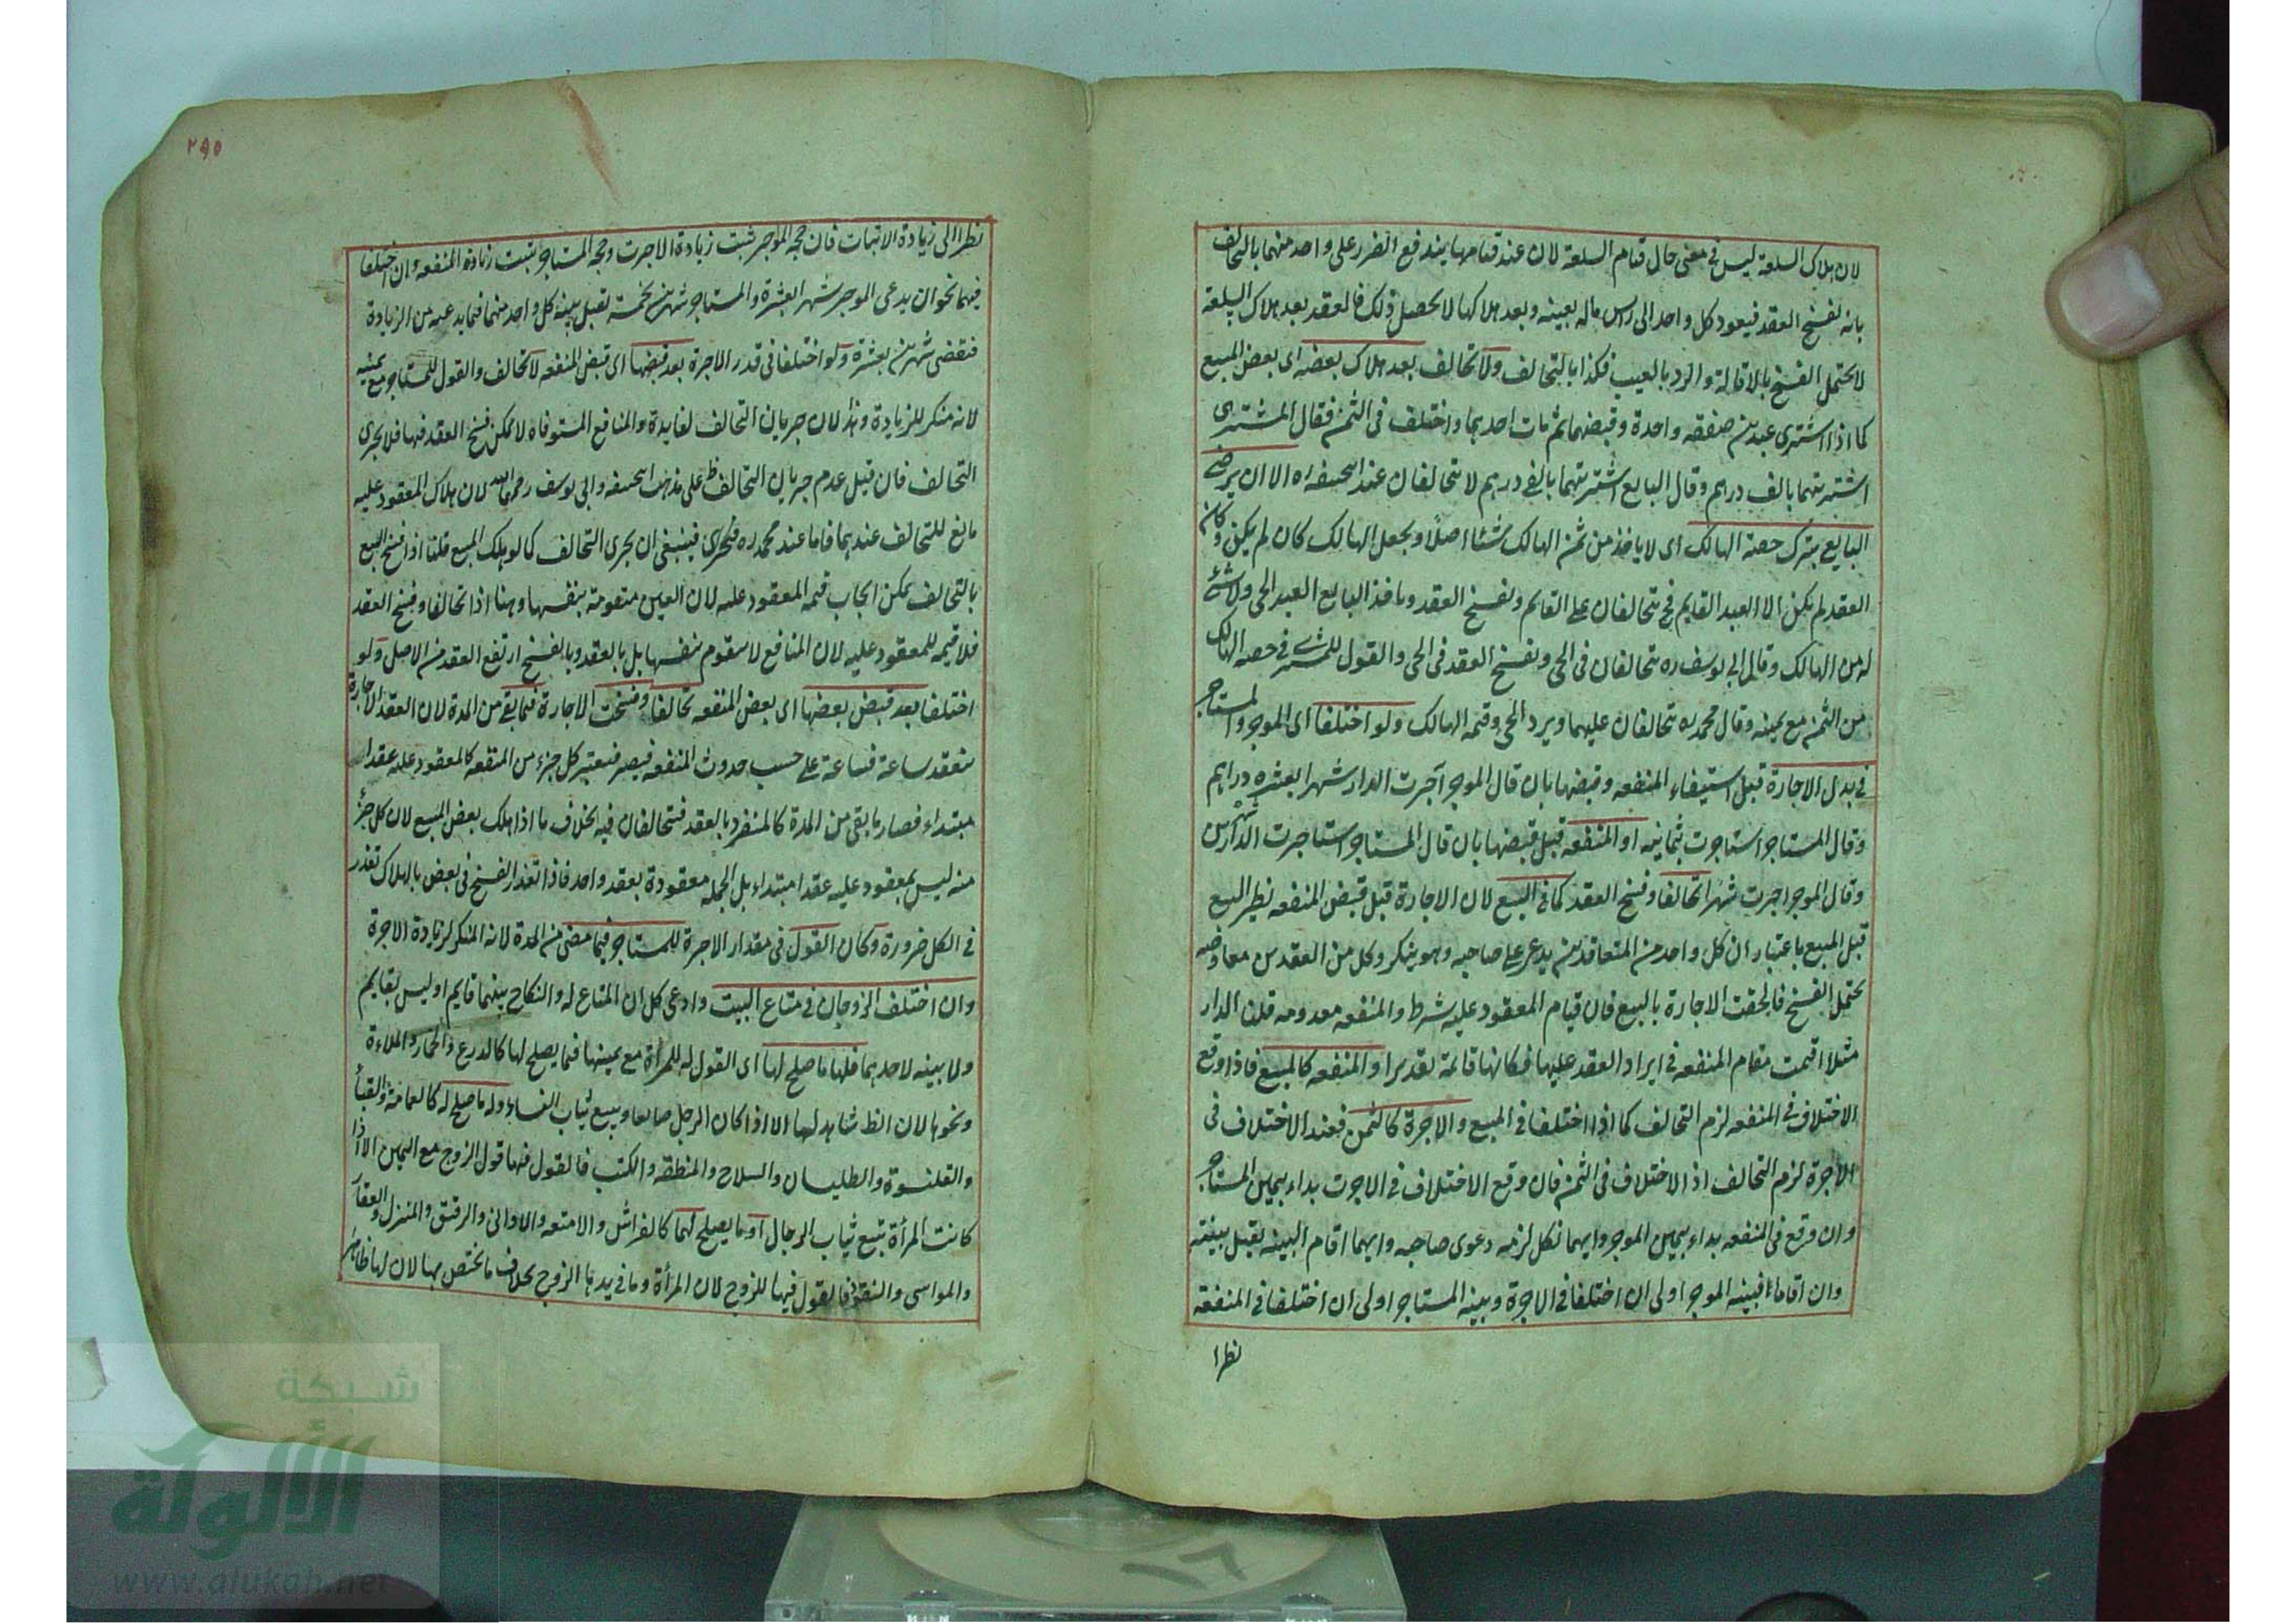 لان هلاك السلعة ليس في معنى حال قيام السلعة لان عند قيامها يندفع الضرر على واحد منهما بالتحالف
بانه لفسخ العقد فيعود كل واحد الى راس ماله بعينه وبعد هلاكها لا يحصل ذلك فالعقد بعد هلاك السلعة
لا يحتمل الفسخ بالاقالة والرد بالعيب فكذا بالتحالف ولا تحالف بعد هلاك بعضه اى بعض المبيع
كما اذا اشترى عبدين صفقه واحدة وقبضهما ثم مات احدهما واختلف في الثمن فقال المشترى
اشتريتهما بالف درهم وقال البايع اشتريتهما بالفى درهم لا يتحالفان عند ابيحنيفه ره الا ان يرضى
البايع بترك حصة الهالك اى لا ياخذ من ثمن الهالك شئا اصلا ويجعل الهالك كان لم يكن وكان
العقد لم يكن الا العبد القايم فح يتحالفان على القايم ويفسخ العقد وياخذ البايع العبد الحى ولا شئ
له من الهالك وقال ابى يوسف ره يتحالفان فى الحى ويفسخ العقد فى الحى والقول للمشترى فى حصه الهالك
من الثمن مع يمينه وقال محمد ره يتحالفان عليهما ويرد الحى وقيمه الهالك ولو اختلفا اى الموجر والمستاجر
فى بدل الاجارة قبل استيفاء المنفعه وقبضها بان قال الموجر آجرت الدار شهرا بعشره دراهم
وقال المستاجر استاجرت بثمانيه او المنفعه قبل قبضها بان قال المستاجر استاجرت الدار شهرين
وقال الموجر اجرت شهرا تحالفا وفسخ العقد كما فى البيع لان الاجارة قبل قبض المنفعه نظير البيع
قبل المبيع باعتبار ان كل واحد من المتعاقدين يدعى على صاحبه وهو ينكر وكل من العقدين معاوضه
يحتمل الفسخ فالحقت الاجارة بالبيع فان قيام المعقود عليه شرط والمنفعه معدومه قلنا الدار
مثلا اقيمت مقام المنفعه فى ايراد العقد عليها فكانها قائمة تقديرا والمنفعه كالمبيع فاذا وقع
الاختلاف فى المنفعه لزم التحالف كما اذا اختلفا فى المبيع والاجرة كالثمن فعند الاختلاف فى
الاجرة لزم التحالف اذ الاختلاف فى الثمن فان وقع الاختلاف فى الاجرت بداء بيمين المستاجر
وان وقع فى المنفعه بداء بيمين الموجر وايهما نكل لزمه دعوى صاحبه وايهما اقام البينه يقبل بينته
وان اقاما فبينه الموجر اولى ان اختلفا فى الاجرة وبينه المستاجر اولى ان اختلفا فى المنفعة
نظرا
٢٩٥
نظرا الى زيادة الاثبات فان حجه الموجر ثبت زيادة الاجرت وحجه المستاجر تثبت زيادة المنفعه وان اختلفا
فيهما نحو ان يدعى الموجر شهرا بعشرة والمستاجر شهرين بخمسة تقبل بينه كل واحد منهما فيما يدعيه من الزيادة
فيقضى شهرين بعشرة ولو اختلفا فى قدر الاجرة بعد قبضها اى قبض المنفعه لا تحالف والقول للمستاجر مع يمينه
لانه منكر للزيادة وهذا لان جريان التحالف لفايدة والمنافع المستوفاه لا يمكن فسخ العقد فيها فلا يجرى
التحالف فان قيل عدم جريان التحالف ظ على مذهب ابيحنيفه وابى يوسف رحمهما الله لان هلاك المعقود عليه
مانع للتحالف عندهما فاما عند محمد ره فينبغى ان يجرى التحالف كما لو هلك المبيع قلنا اذا فسخ البيع
بالتحالف يمكن ايجاب قيمه المعقود عليه لان العين متقومة بنفسها وهنا اذا تحالفا وفسخ العقد
فلا قيمه للمعقود عليه لان المنافع لا يتقوم بنفسها بل بالعقد وبالفسخ ارتفع العقد من الاصل ولو
اختلفا بعد قبض بعضها اى بعض المنفعه تحالفا وفسخت الاجارة فيما بقى من المدة لان العقد الاجارة
ينعقد ساعة فساعة على حسب حدوث المنفعه فيصير فيعتبر كل جزء من المنفعه كالمعقود عليه عقدا
مبتداء فصار ما بقى من المدة كالمنفرد بالعقد فيتحالفان فيه بخلاف ما اذا هلك بعض المبيع لان كل جزء
منه ليس بمعقود عليه عقدا مبتداء بل الجمله معقودة بعقد واحد فاذا تعذر الفسخ فى بعض بالهلاك تعذر
فى الكل ضرورة وكان القول فى مقدار الاجرة للمستاجر فيما مضى من المدة لانه المنكر لزيادة الاجرة
وان اختلف الزوجان فى متاع البيت وادعى كل ان المتاع له والنكاح بينهما قايم او ليس بقايم
ولا بينه لاحدهما فلها ما صلح لها اى القول له للمرأة مع يمينها فيما يصلح لها كالدرع والخمار والملاءة
ونحوها لان الظ شاهد لها الا اذا كان الرجل صايغا ويبيع ثياب النساء وله ما صلح له كالعمامة والقبأ
والقلنسوة والطليسان والسلاح والمنطقه والكتب فالقول فيها قول الزوج مع اليمين الا اذا
كانت المرأة تبيع ثياب الرجال او ما يصلح لهما كالفراش والامتعه والاوانى والرقيق والمنزل والعقار
والمواسى والنقود فالقول فيها للزوج لان المرأة وما فى يدها الزوج بخلاف ما يختص بها لان لها ظاهر
شبكة
الألوكة
www.alukah.net